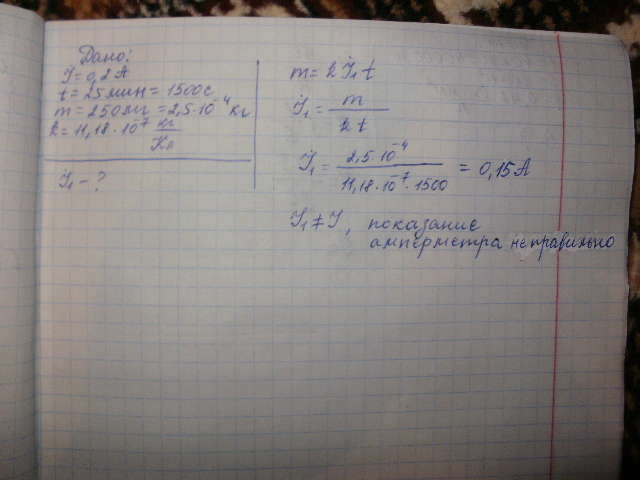 Дано:
I = 0,2 А
t = 25 мин = 1500 с
m = 250 мг = 2,5·10⁻⁴ кг
k = 11,18·10⁻⁷ кг/Кл
I₁ - ?
m = k I₁ t
I₁ = m / k t
I₁ = 2,5·10⁻⁴ / 11,18·10⁻⁷·1500 = 0,15 А
I₁ ≠ I, показание
амперметра неправильно